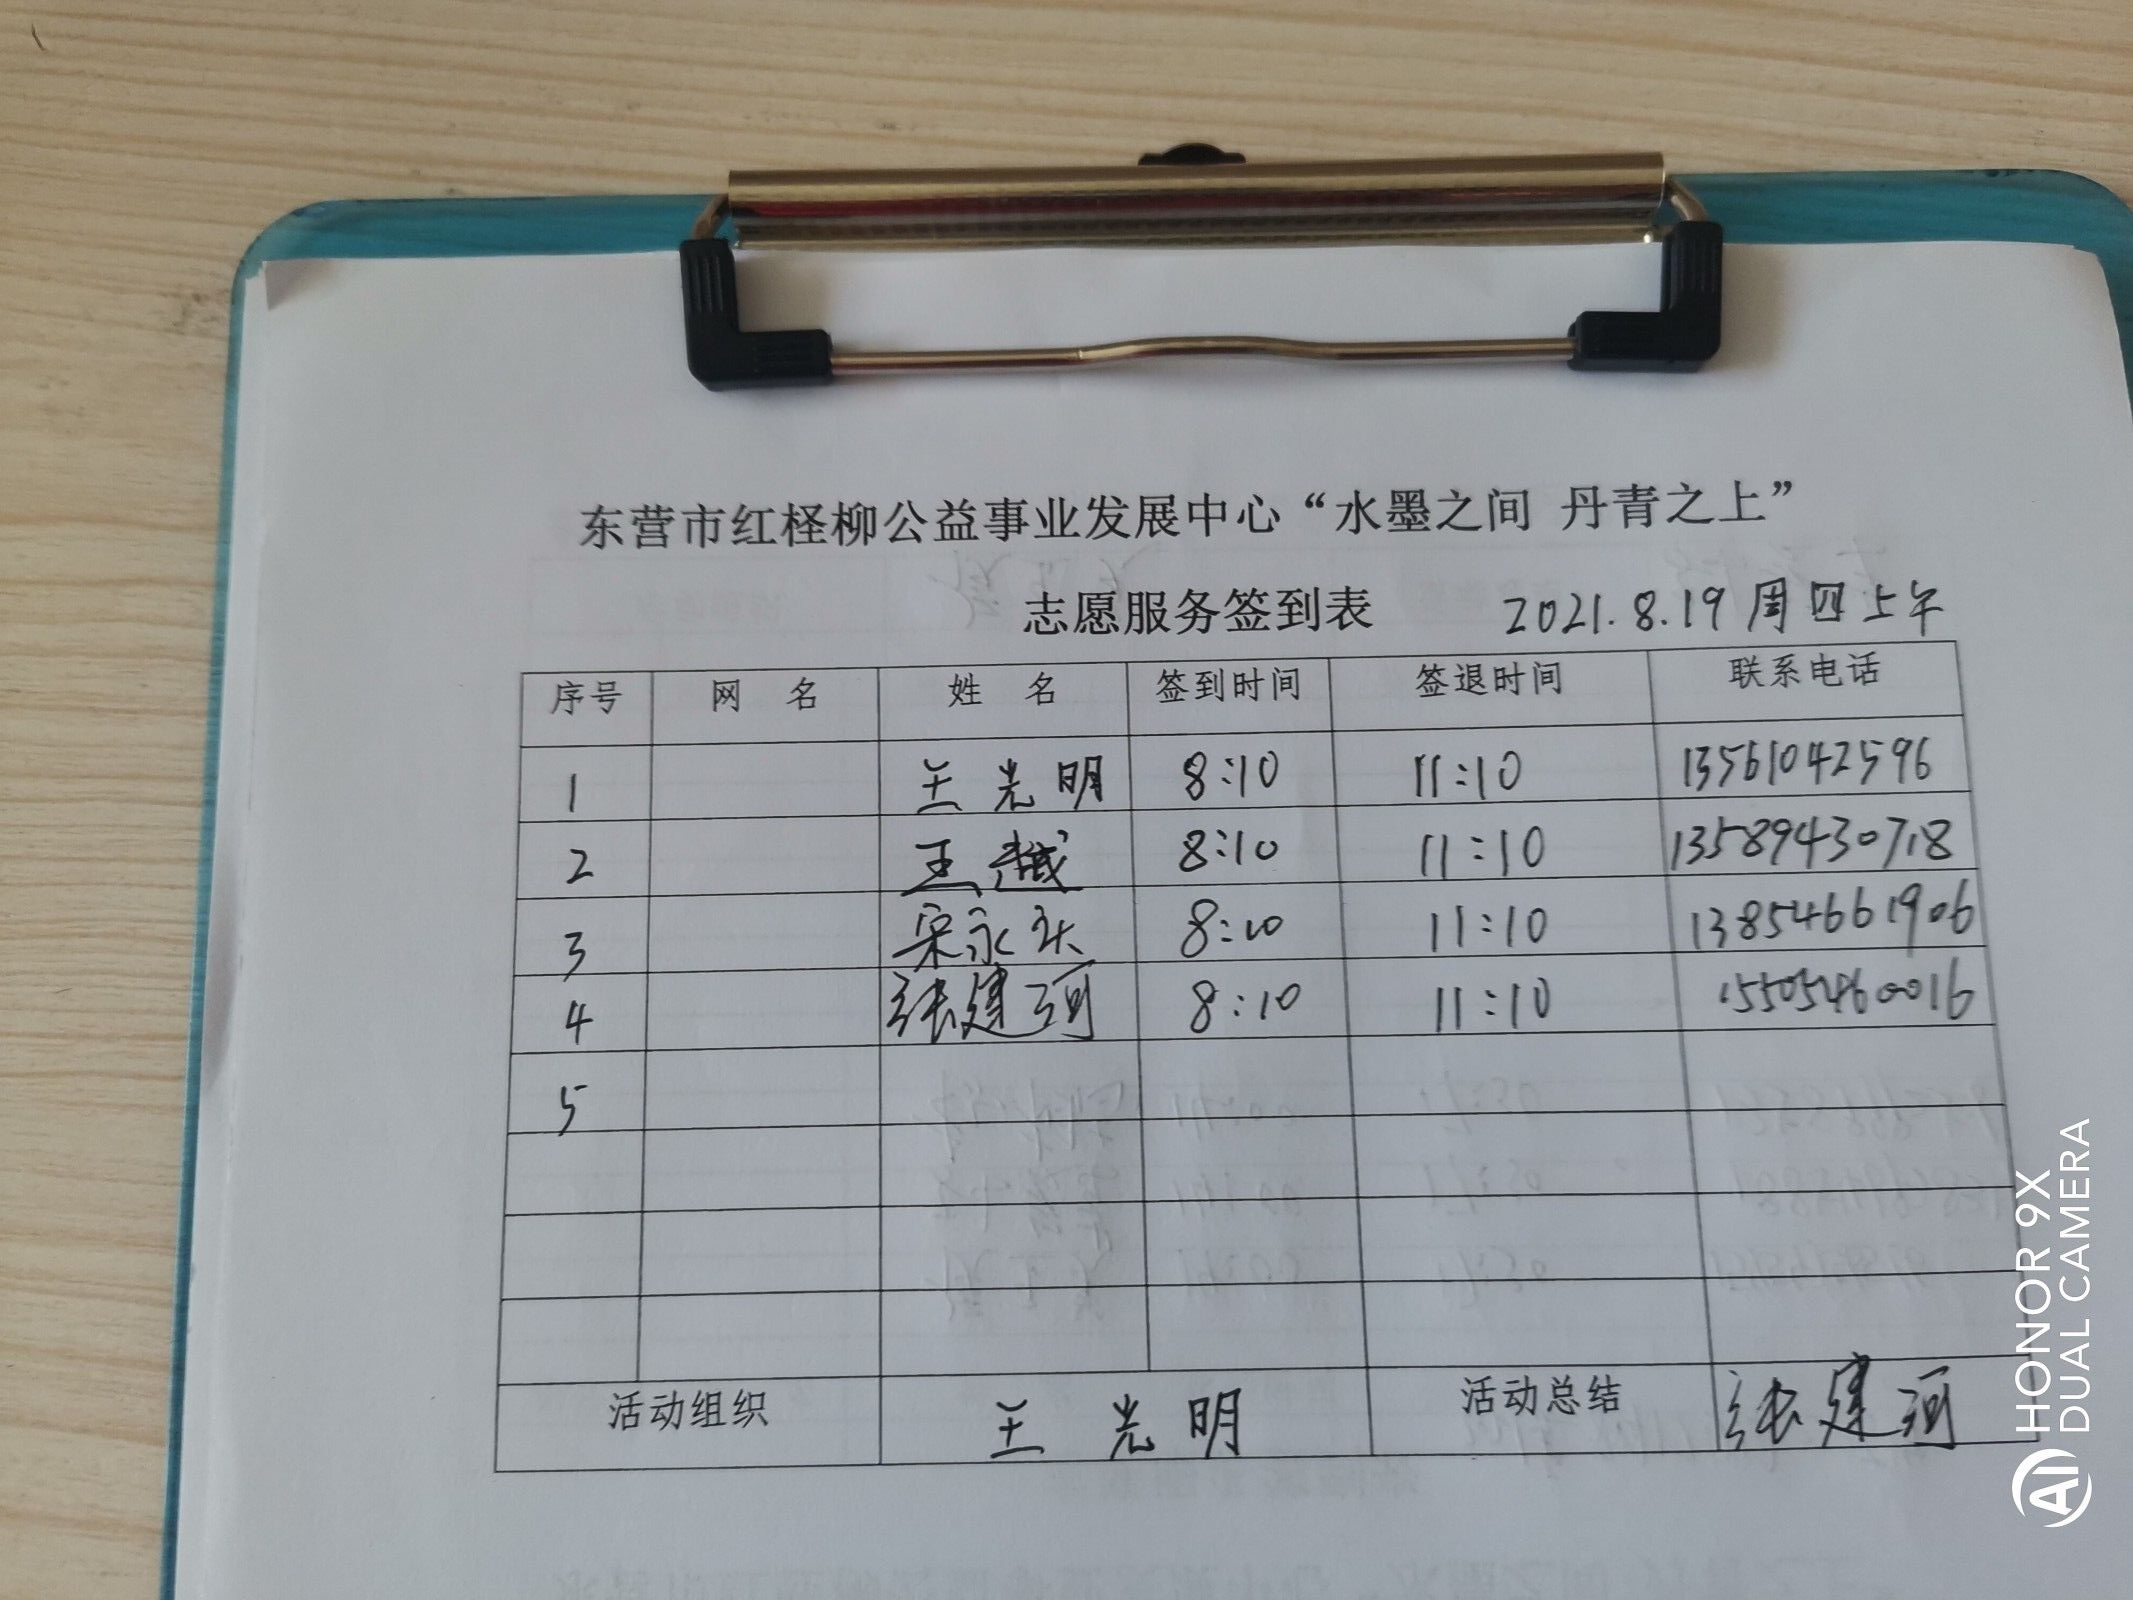 东营市红柽柳公益事业发展中心“水墨之间 丹青之上”
志愿服务签到表 2021.8.19周四上午
序号 网 名 姓 名 签到时间 签退时间 联系电话
1 王光明 8:10 11:10 13561042596
2 王越 8:10 11:10 13589430718
3 宋永 8:10 11:10 13854661906
4 张建河 8:10 11:10 15505460016
5
活动组织 王光明 活动总结 张建河
HONOR 9X
DUAL CAMERA
AI